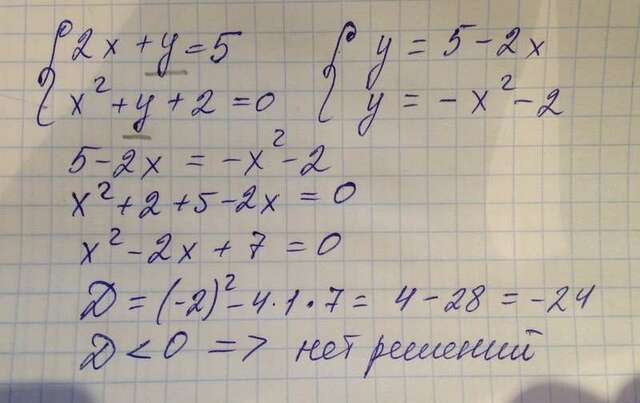 2x + y = 5
x² + y + 2 = 0
y = 5 - 2x
y = -x² - 2
5 - 2x = -x² - 2
x² + 2 + 5 - 2x = 0
x² - 2x + 7 = 0
D = (-2)² - 4·1·7 = 4 - 28 = -24
D < 0 => нет решений